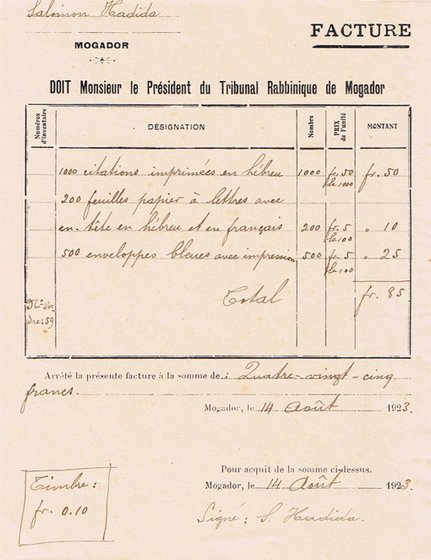 Salomon Hadida
MOGADOR
FACTURE
DOIT Monsieur le Président du Tribunal Rabbinique de Mogador
Numéros d'inventaire DÉSIGNATION Nombre PRIX de l'unité MONTANT
1000 citations imprimées en hébreu 1000 fr. 50 le 1000 fr. 50
200 feuilles papier à lettres avec
en-tête en hébreu et en français 200 fr. 5 le 100 " 10
500 enveloppes bleues avec impression 500 fr. 5 le 100 " 25
Total fr. 85
dre: 59
Arrêté la présente facture à la somme de: Quatre-vingt-cinq
francs.
Mogador, le 14 Août 1923
Pour acquit de la somme ci-dessus.
Mogador, le 14 Août 1923.
Timbre:
fr. 0.10
Signé: S. Hadida.